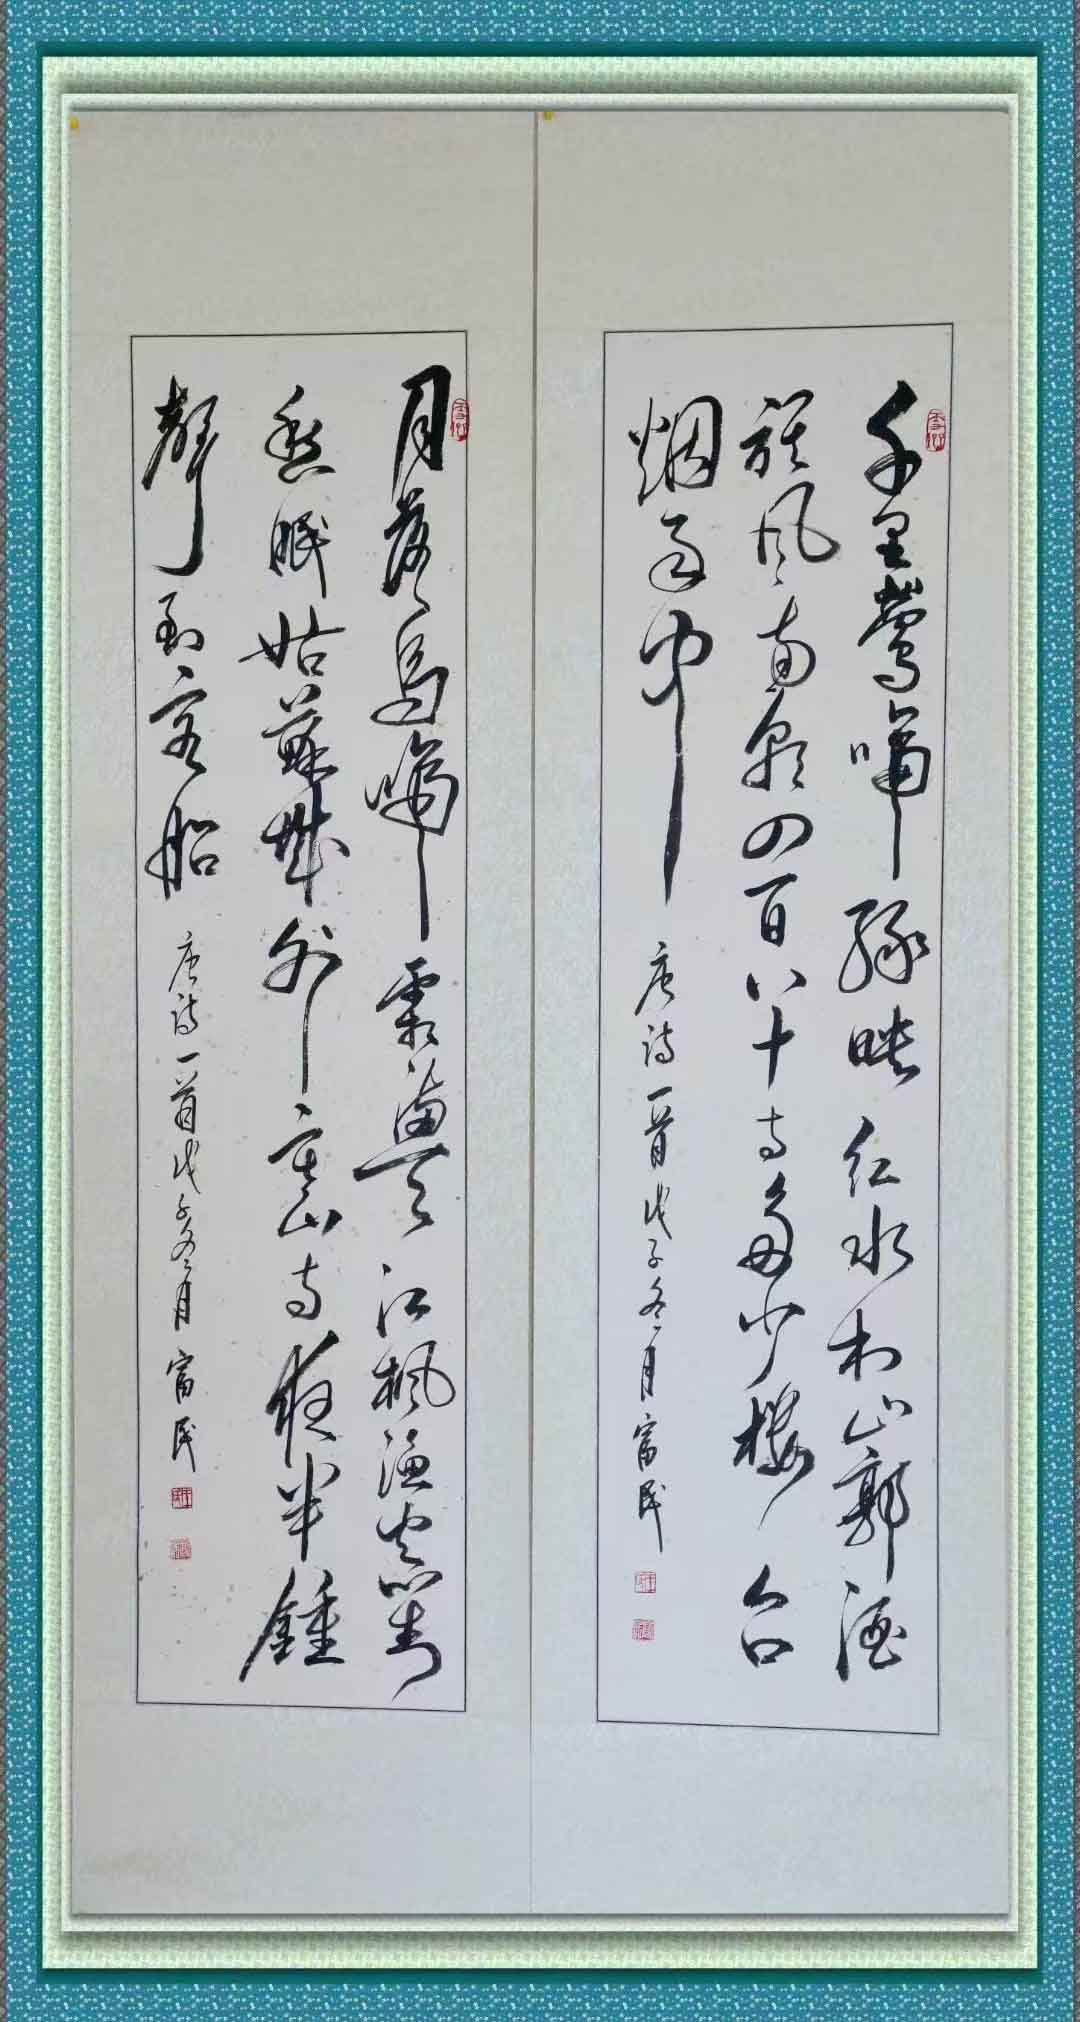 千里鶯啼绿映红水村山郭酒
旗风南朝四百八十寺多少楼台
烟雨中
唐诗一首戊子冬月富民
月落烏啼霜满天江枫渔火對
愁眠姑蘇城外寒山寺夜半鍾
聲到客船
唐诗一首戊子冬月富民